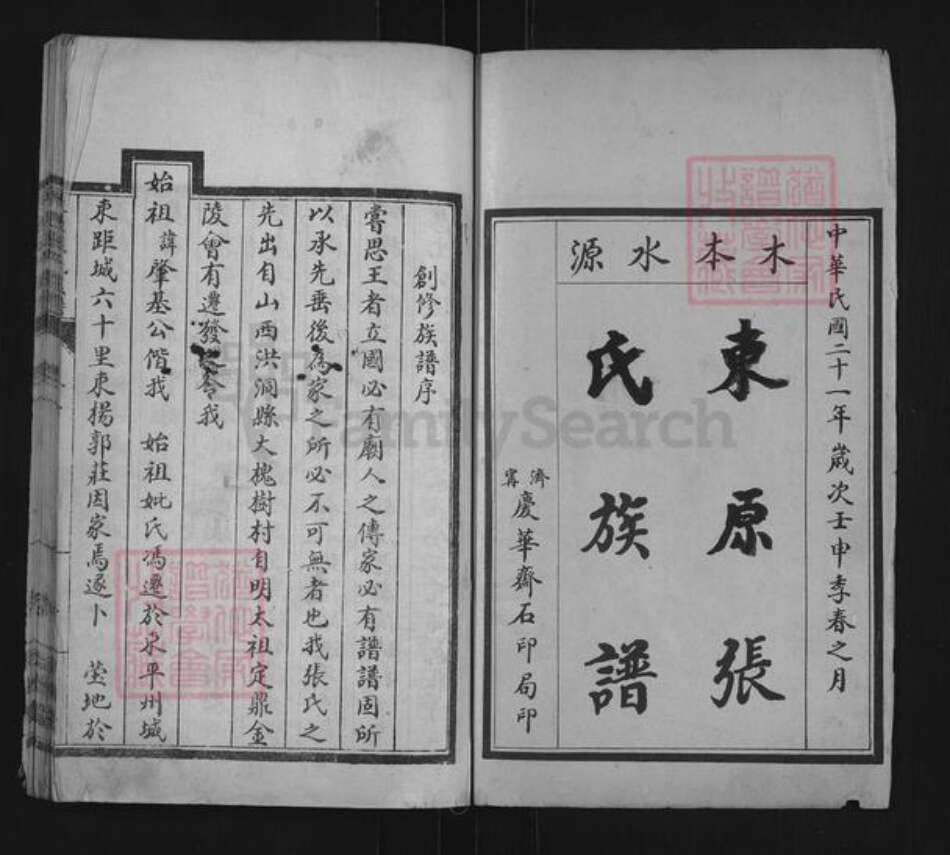 中華民國二十一年歲次壬申季春之月
木本水源
東原張
氏族譜
濟寧慶華齋石印局印
創修族譜序
嘗思王者立國必有廟人之傳家必有譜譜固所
以承先垂後為家之所必不可無者也我張氏之
先出自山西洪洞縣大槐樹村自明太祖定鼎金
陵會有遷發之令我
始祖諱肇基公偕我 始祖妣氏馮遷於東平州城
東距城六十里東楊郭莊因家焉遂卜 塋地於
FamilySearch